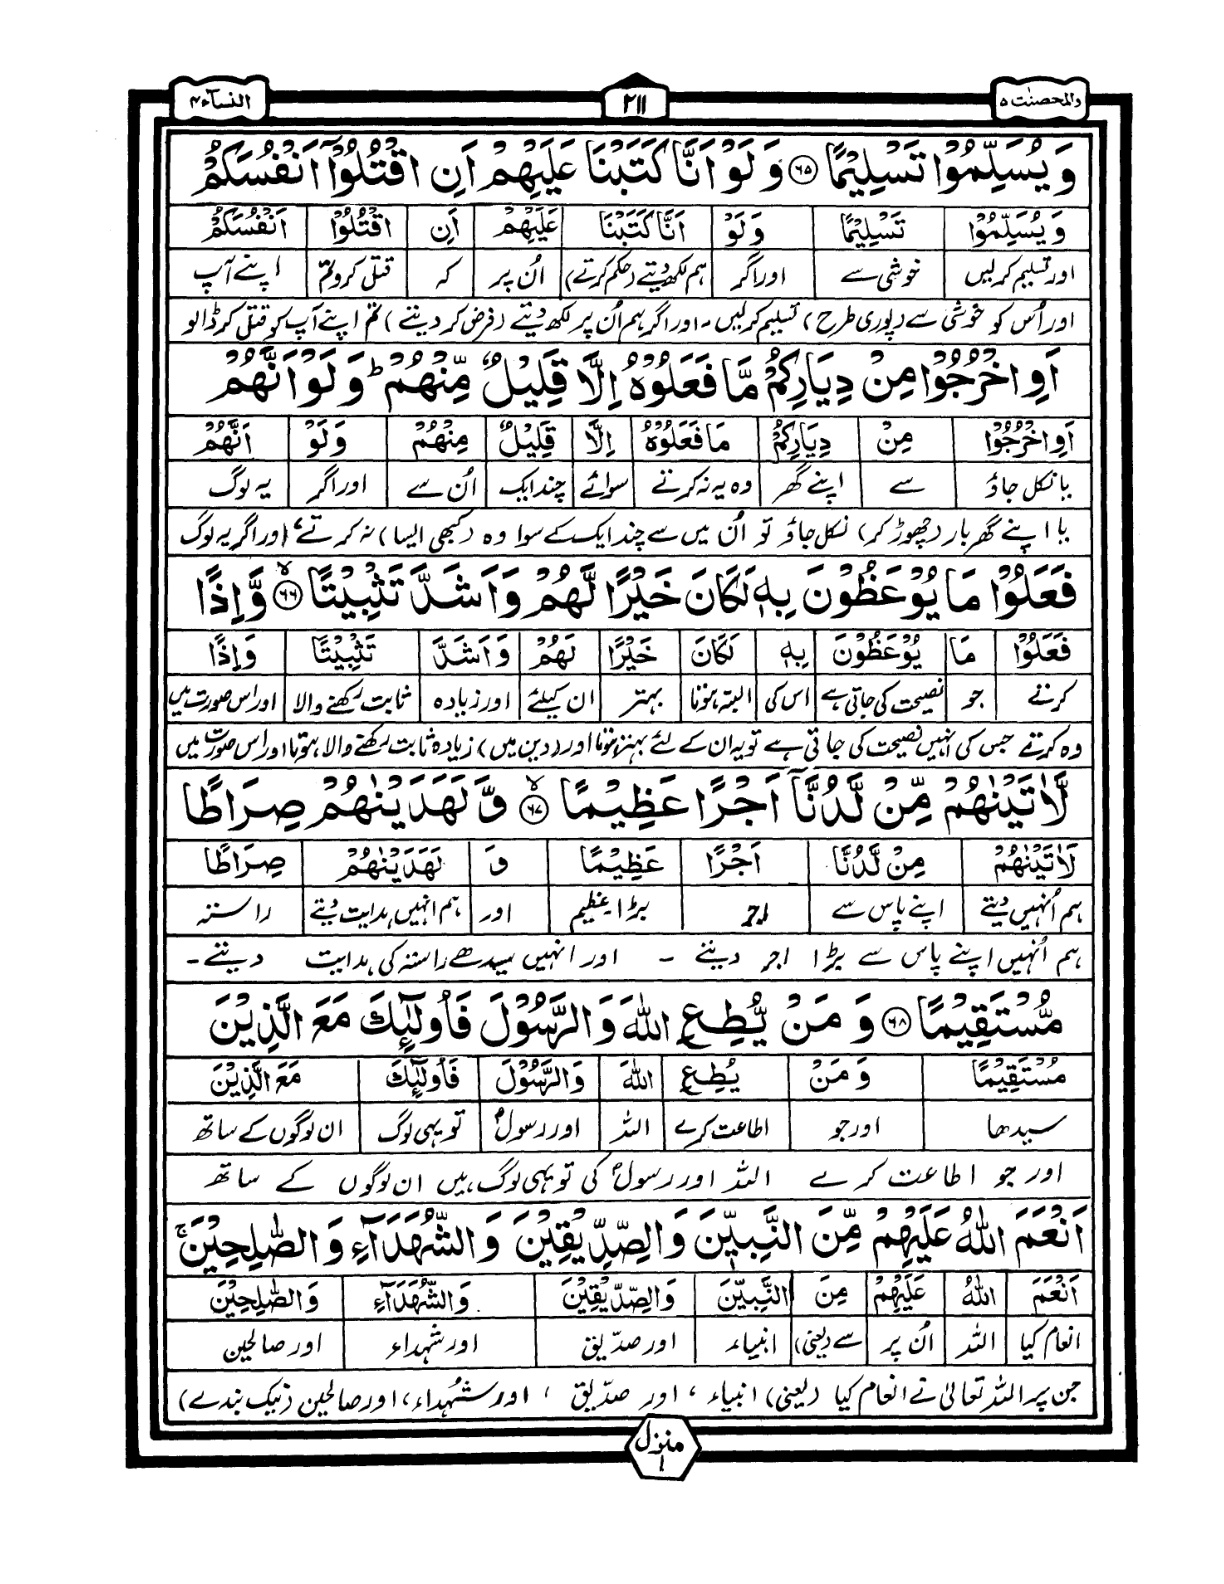 والمحصنٰت ۵ ۲۱۱ النسآء ۴
وَيُسَلِّمُوْا تَسْلِيْمًا ۶۵ وَلَوْ اَنَّا كَتَبْنَا عَلَيْهِمْ اَنِ اقْتُلُوْٓا اَنْفُسَكُمْ
وَيُسَلِّمُوْا تَسْلِيْمًا وَلَوْ اَنَّا كَتَبْنَا عَلَيْهِمْ اَنِ اقْتُلُوْٓا اَنْفُسَكُمْ
اور تسلیم کرلیں خوشی سے اوراگر ہم لکھ دیتے (حکم کرتے) اُن پر کہ قتل کرو تم اپنے آپ
اور اُس کو خوشی سے (پوری طرح) تسلیم کرلیں۔ اور اگر ہم اُن پر لکھ دیتے (فرض کر دیتے) تم اپنے آپ کو قتل کر ڈالو
اَوِ اخْرُجُوْا مِنْ دِيَارِكُمْ مَّا فَعَلُوْهُ اِلَّا قَلِيْلٌ مِّنْهُمْ ؕ وَلَوْ اَنَّهُمْ
اَوِ اخْرُجُوْا مِنْ دِيَارِكُمْ مَا فَعَلُوْهُ اِلَّا قَلِيْلٌ مِنْهُمْ وَلَوْ اَنَّهُمْ
یا نکل جاؤ سے اپنے گھر وہ یہ نہ کرتے سوائے چند ایک اُن سے اوراگر یہ لوگ
یا اپنے گھر بار (چھوڑ کر) نکل جاؤ تو اُن میں سے چند ایک کے سوا وہ (کبھی ایسا) نہ کرتے، اور اگر یہ لوگ
فَعَلُوْا مَا يُوْعَظُوْنَ بِهٖ لَكَانَ خَيْرًا لَّهُمْ وَاَشَدَّ تَثْبِيْتًا ۶۶ وَّاِذًا
فَعَلُوْا مَا يُوْعَظُوْنَ بِهٖ لَكَانَ خَيْرًا لَهُمْ وَاَشَدَّ تَثْبِيْتًا وَاِذًا
کرتے جو نصیحت کی جاتی ہے اس کی البتہ ہوتا بہتر ان کیلئے اور زیادہ ثابت رکھنے والا اور اس صورت میں
وہ کرتے جس کی انہیں نصیحت کی جاتی ہے تو یہ ان کے لئے بہتر ہوتا اور (دین میں) زیادہ ثابت رکھنے والا ہوتا اور اس صورت میں
لَّاٰتَيْنٰهُمْ مِّنْ لَّدُنَّآ اَجْرًا عَظِيْمًا ۶۷ وَّ لَهَدَيْنٰهُمْ صِرَاطًا
لَاٰتَيْنٰهُمْ مِنْ لَّدُنَّا اَجْرًا عَظِيْمًا وَ لَهَدَيْنٰهُمْ صِرَاطًا
ہم اُنہیں دیتے اپنے پاس سے اجر بڑا عظیم اور ہم انہیں ہدایت دیتے راستہ
ہم اُنہیں اپنے پاس سے بڑا اجر دیتے ۔ اور انہیں سیدھے راستہ کی ہدایت دیتے۔
مُّسْتَقِيْمًا ۶۸ وَ مَنْ يُّطِعِ اللّٰهَ وَالرَّسُوْلَ فَاُولٰٓئِكَ مَعَ الَّذِيْنَ
مُسْتَقِيْمًا وَمَنْ يُطِعِ اللّٰهَ وَالرَّسُوْلَ فَاُولٰٓئِكَ مَعَ الَّذِيْنَ
سیدھا اور جو اطاعت کرے اللہ اور رسولؐ تو یہی لوگ ان لوگوں کے ساتھ
اور جو اطاعت کرے اللہ اور رسولؐ کی تو یہی لوگ ہیں ان لوگوں کے ساتھ
اَنْعَمَ اللّٰهُ عَلَيْهِمْ مِّنَ النَّبِيّٖنَ وَالصِّدِّيْقِيْنَ وَالشُّهَدَآءِ وَالصّٰلِحِيْنَ ۚ
اَنْعَمَ اللّٰهُ عَلَيْهِمْ مِنَ النَّبِيّٖنَ وَالصِّدِّيْقِيْنَ وَالشُّهَدَآءِ وَالصّٰلِحِيْنَ
انعام کیا اللہ اُن پر سے (یعنی) انبیاء اور صدّیق اور شہداء اور صالحین
جن پر اللہ تعالیٰ نے انعام کیا (یعنی) انبیاء، اور صدّیق، اور شہداء، اور صالحین (نیک بندے)
منزل ۱